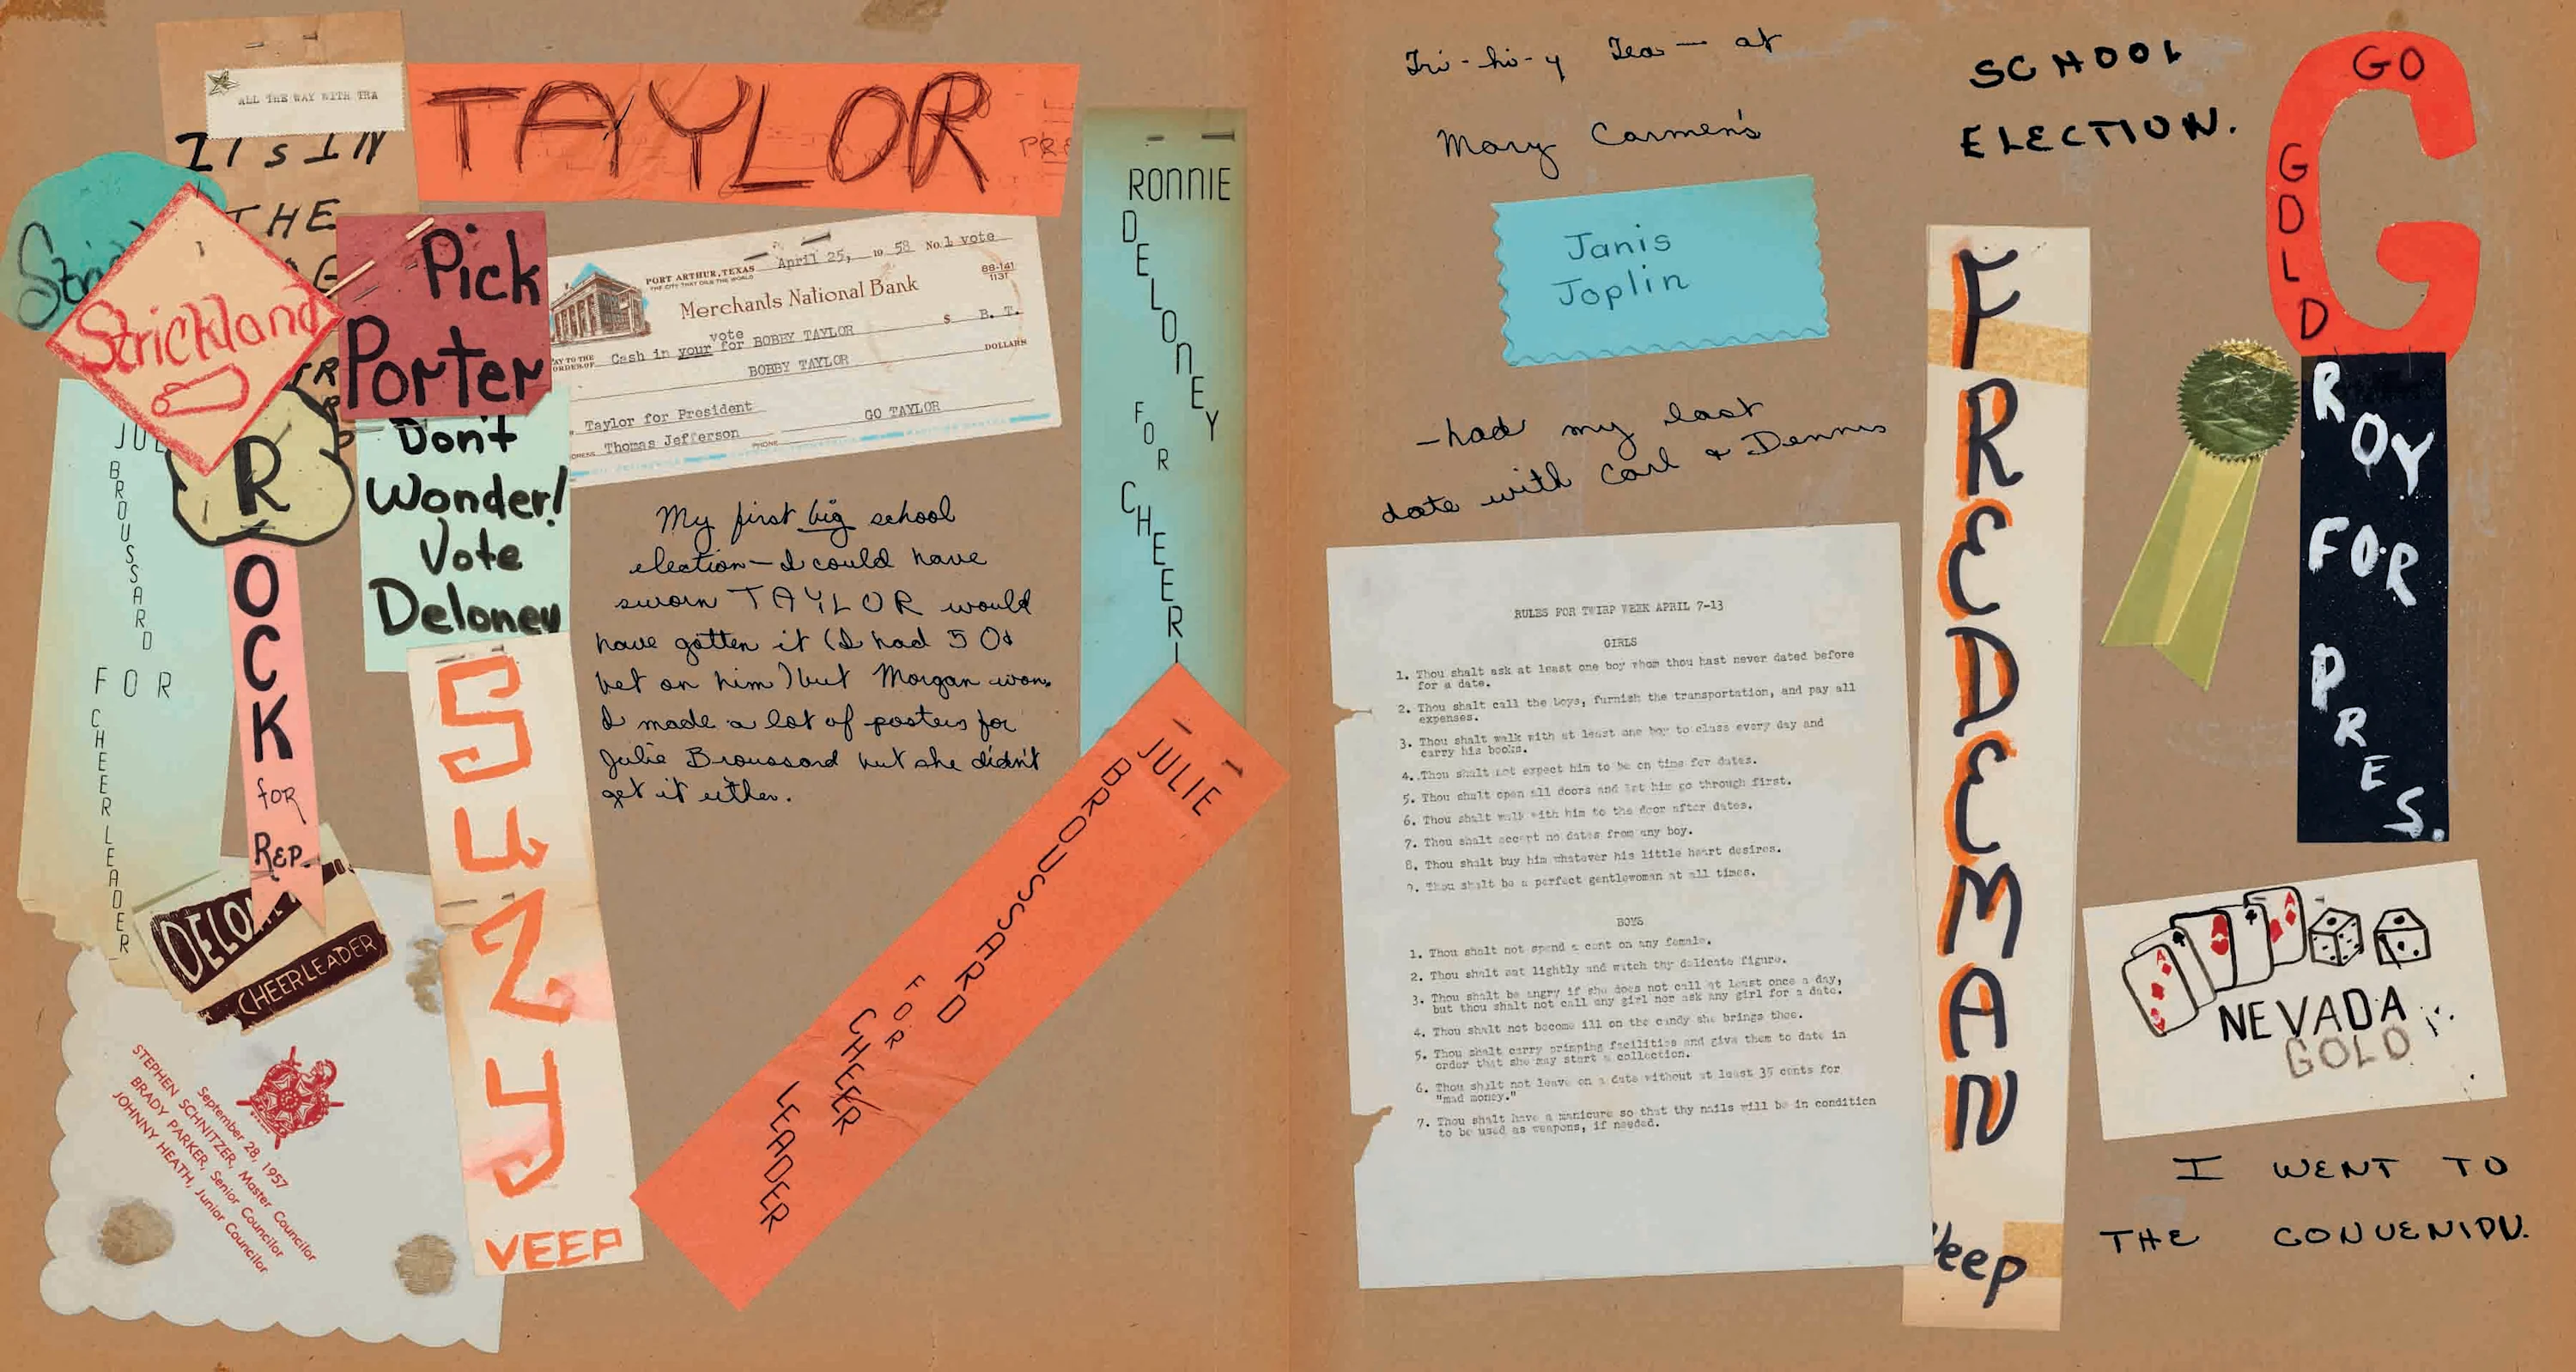 ALL THE WAY WITH TRA
IT'S IN
THE
TAYLOR
PRE
Strickland
Pick
Porter
Don't
Wonder!
Vote
Deloney
April 25, 1958 No. 1 vote
PORT ARTHUR, TEXAS
THE CITY THAT OILS THE WORLD
88-141
1131
Merchants National Bank
PAY TO THE
ORDER OF
Cash in your vote for BOBBY TAYLOR $ B. T.
BOBBY TAYLOR DOLLARS
Taylor for President
GO TAYLOR
Thomas Jefferson
PHONE
JUL
BROUSSARD
FOR
CHEERLEADER
ROCK
for
REP.
DELO
CHEERLEADER
September 28, 1957
STEPHEN SCHNITZER, Master Councilor
BRADY PARKER, Senior Councilor
JOHNNY HEATH, Junior Councilor
SUNJ
VEEP
My first big school
election – I could have
sworn TAYLOR would
have gotten it (I had 50¢
bet on him) but Morgan won.
I made a lot of posters for
Julie Broussard but she didn't
get it either.
RONNIE
DELONEY
FOR
CHEER
JULIE
BROUSSARD
FOR
CHEER
LEADER
Tri-hi-y Tea — at
Mary Carmen's
Janis
Joplin
-had my last
date with Carl & Dennis
RULES FOR TWIRP WEEK APRIL 7-13
GIRLS
1. Thou shalt ask at least one boy whom thou hast never dated before
for a date.
2. Thou shalt call the boys, furnish the transportation, and pay all
expenses.
3. Thou shalt walk with at least one boy to class every day and
carry his books.
4. Thou shalt not expect him to be on time for dates.
5. Thou shalt open all doors and let him go through first.
6. Thou shalt walk with him to the door after dates.
7. Thou shalt accept no dates from any boy.
8. Thou shalt buy him whatever his little heart desires.
9. Thou shalt be a perfect gentlewoman at all times.
BOYS
1. Thou shalt not spend a cent on any female.
2. Thou shalt eat lightly and watch thy delicate figure.
3. Thou shalt be angry if she does not call at least once a day,
but thou shalt not call any girl nor ask any girl for a date.
4. Thou shalt not become ill on the candy she brings thee.
5. Thou shalt carry primping facilities and give them to date in
order that she may start a collection.
6. Thou shalt not leave on a date without at least 35 cents for
"mad money."
7. Thou shalt have a manicure so that thy nails will be in condition
to be used as weapons, if needed.
SCHOOL
ELECTION.
FREDEMAN
Veep
G
GO
GOLD
ROY
FOR
PRES.
A
A
NEVADA
GOLD
I WENT TO
THE CONVENIDN.